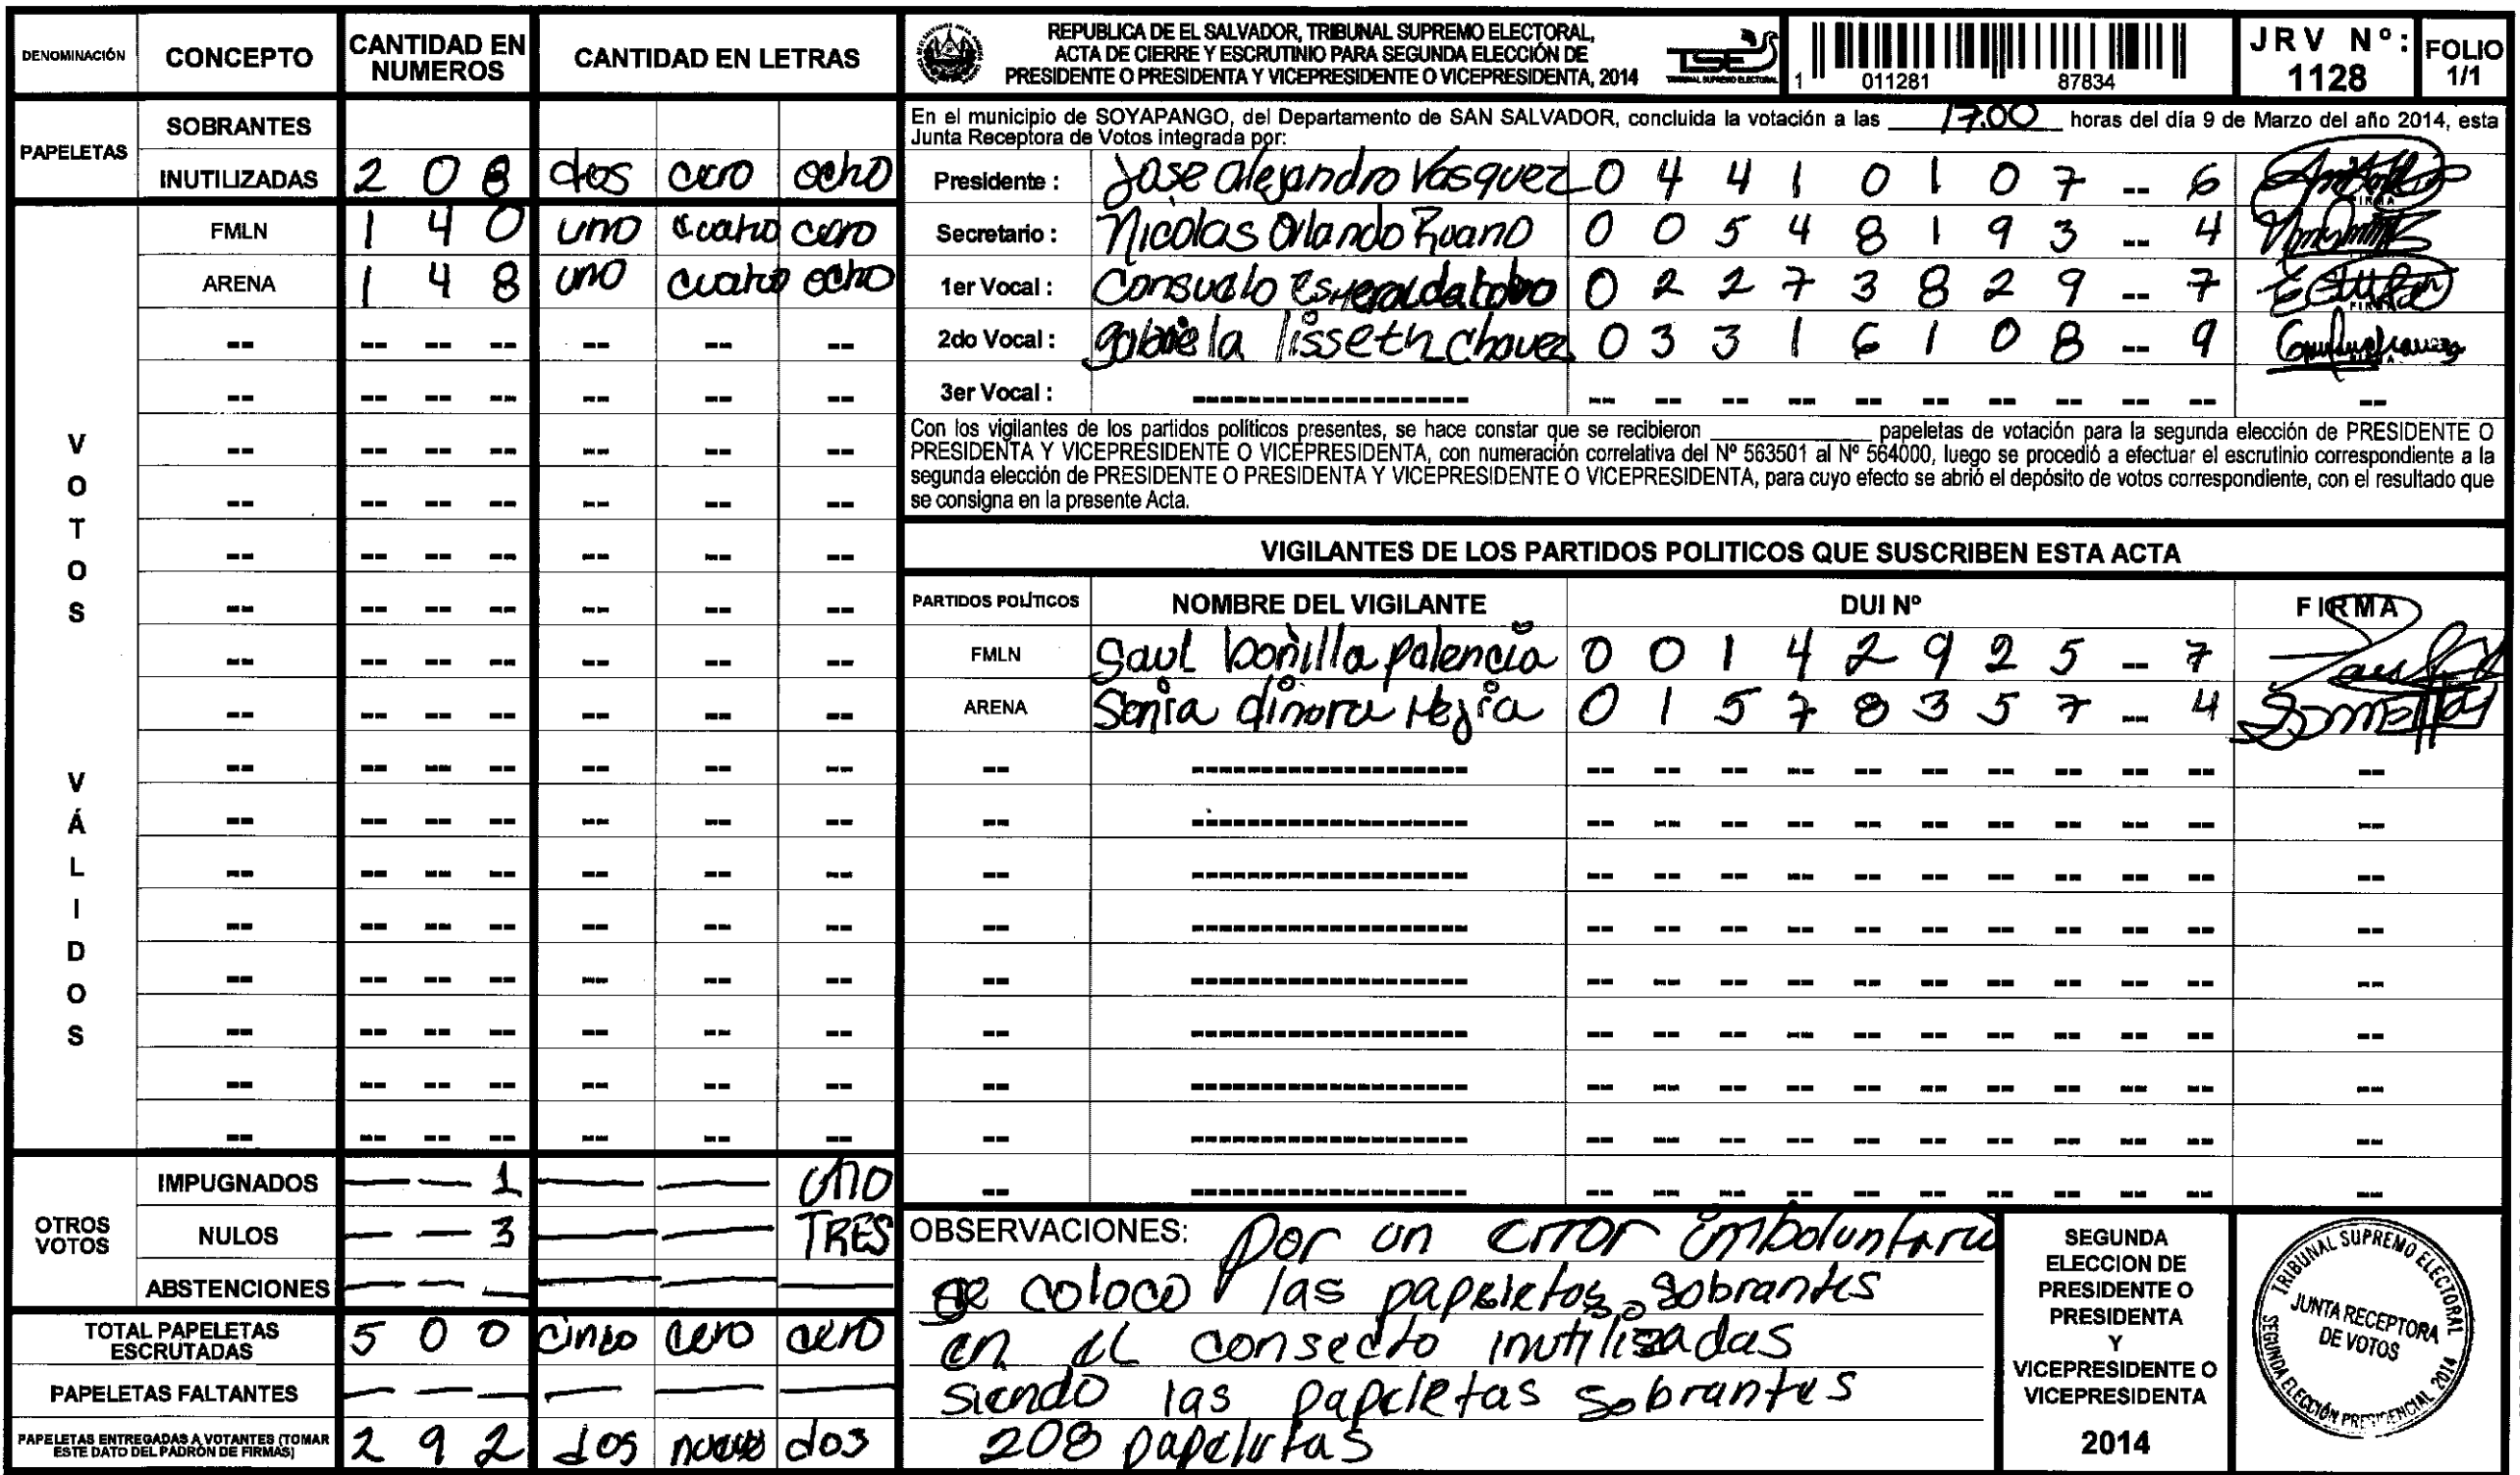 DENOMINACIÓN CONCEPTO CANTIDAD EN NUMEROS CANTIDAD EN LETRAS
PAPELETAS
SOBRANTES
INUTILIZADAS 2 0 8 dos cero ocho
VOTOS VÁLIDOS
FMLN 1 4 0 uno cuatro cero
ARENA 1 4 8 uno cuatro ocho
OTROS VOTOS
IMPUGNADOS — — 1 — — uno
NULOS — — 3 — — TRES
ABSTENCIONES — — — — — —
TOTAL PAPELETAS ESCRUTADAS 5 0 0 cinco cero cero
PAPELETAS FALTANTES — — — — — —
PAPELETAS ENTREGADAS A VOTANTES (TOMAR ESTE DATO DEL PADRÓN DE FIRMAS) 2 9 2 dos nueve dos
REPUBLICA DE EL SALVADOR, TRIBUNAL SUPREMO ELECTORAL,
ACTA DE CIERRE Y ESCRUTINIO PARA SEGUNDA ELECCIÓN DE
PRESIDENTE O PRESIDENTA Y VICEPRESIDENTE O VICEPRESIDENTA, 2014
TSE
TRIBUNAL SUPREMO ELECTORAL
1 011281 87834
JRV Nº: 1128
FOLIO 1/1
En el municipio de SOYAPANGO, del Departamento de SAN SALVADOR, concluida la votación a las 17.00 horas del día 9 de Marzo del año 2014, esta
Junta Receptora de Votos integrada por:
Presidente : Jose Alejandro Vasquez 0 4 4 1 0 1 0 7 -- 6
Secretario : Nicolas Orlando Ruano 0 0 5 4 8 1 9 3 -- 4
1er Vocal : Consuelo Esmeralda tobo 0 2 2 7 3 8 2 9 -- 7
2do Vocal : gabriela lisseth chavez 0 3 3 1 6 1 0 8 -- 9
3er Vocal : -- -- -- -- -- -- -- -- -- -- --
FIRMA
Con los vigilantes de los partidos políticos presentes, se hace constar que se recibieron ____ papeletas de votación para la segunda elección de PRESIDENTE O
PRESIDENTA Y VICEPRESIDENTE O VICEPRESIDENTA, con numeración correlativa del Nº 563501 al Nº 564000, luego se procedió a efectuar el escrutinio correspondiente a la
segunda elección de PRESIDENTE O PRESIDENTA Y VICEPRESIDENTE O VICEPRESIDENTA, para cuyo efecto se abrió el depósito de votos correspondiente, con el resultado que
se consigna en la presente Acta.
VIGILANTES DE LOS PARTIDOS POLITICOS QUE SUSCRIBEN ESTA ACTA
PARTIDOS POLÍTICOS NOMBRE DEL VIGILANTE DUI Nº FIRMA
FMLN Saul bonilla palencia 0 0 1 4 2 9 2 5 -- 7
ARENA Sonia dinora Mejia 0 1 5 7 8 3 5 7 -- 4
OBSERVACIONES: Por un error imboluntario
se coloco las papeletas sobrantes
en el consecto inutilizadas
siendo las papeletas sobrantes
208 papeletas
SEGUNDA
ELECCION DE
PRESIDENTE O
PRESIDENTA
Y
VICEPRESIDENTE O
VICEPRESIDENTA
2014
TRIBUNAL SUPREMO ELECTORAL
JUNTA RECEPTORA
DE VOTOS
SEGUNDA ELECCIÓN PRESIDENCIAL 2014